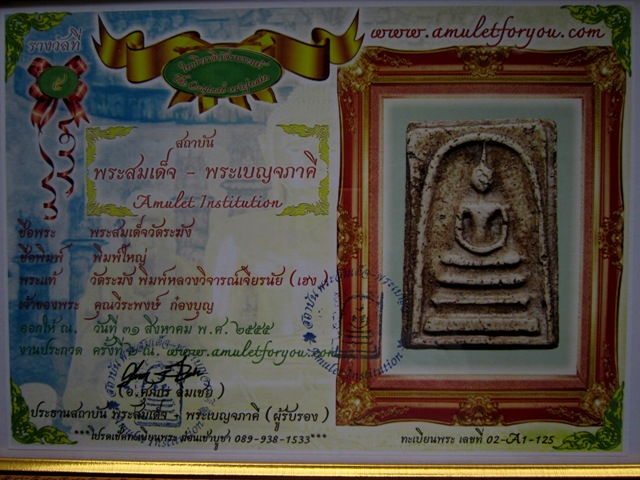 รางวัลที่
๕
www.amuletforyou.com
สถาบัน
พระสมเด็จ - พระเบญจภาคี
Amulet Institution
ชื่อพระ พระสมเด็จวัดระฆัง
ชื่อพิมพ์ พิมพ์ใหญ่
พระแท้ วัดระฆัง พิมพ์หลวงวิจารณ์เจียรนัย (เฮง)
เจ้าของพระ คุณวีระพงษ์ ก๋องบุญ
ออกให้ ณ. วันที่ ๓๑ สิงหาคม พ.ศ. ๒๕๕๕
งานประกวด ครั้งที่ ๒ ณ. www.amuletforyou.com
ประธานสถาบัน พระสมเด็จ - พระเบญจภาคี (ผู้รับรอง)
***โปรดเช็คทะเบียนพระ ก่อนเช่าบูชา 089-938-1533***
ทะเบียนพระ เลขที่ 02-A1-125
สถาบัน พระสมเด็จ - พระเบญจภาคี
Amulet Institution